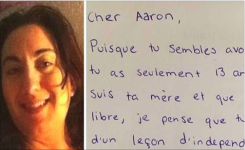 Cher Aaron,
Puisque tu sembles avo
tu as seulement 13 an
suis ta mère et que
libre, je pense que t
d'un leçon d'indépend